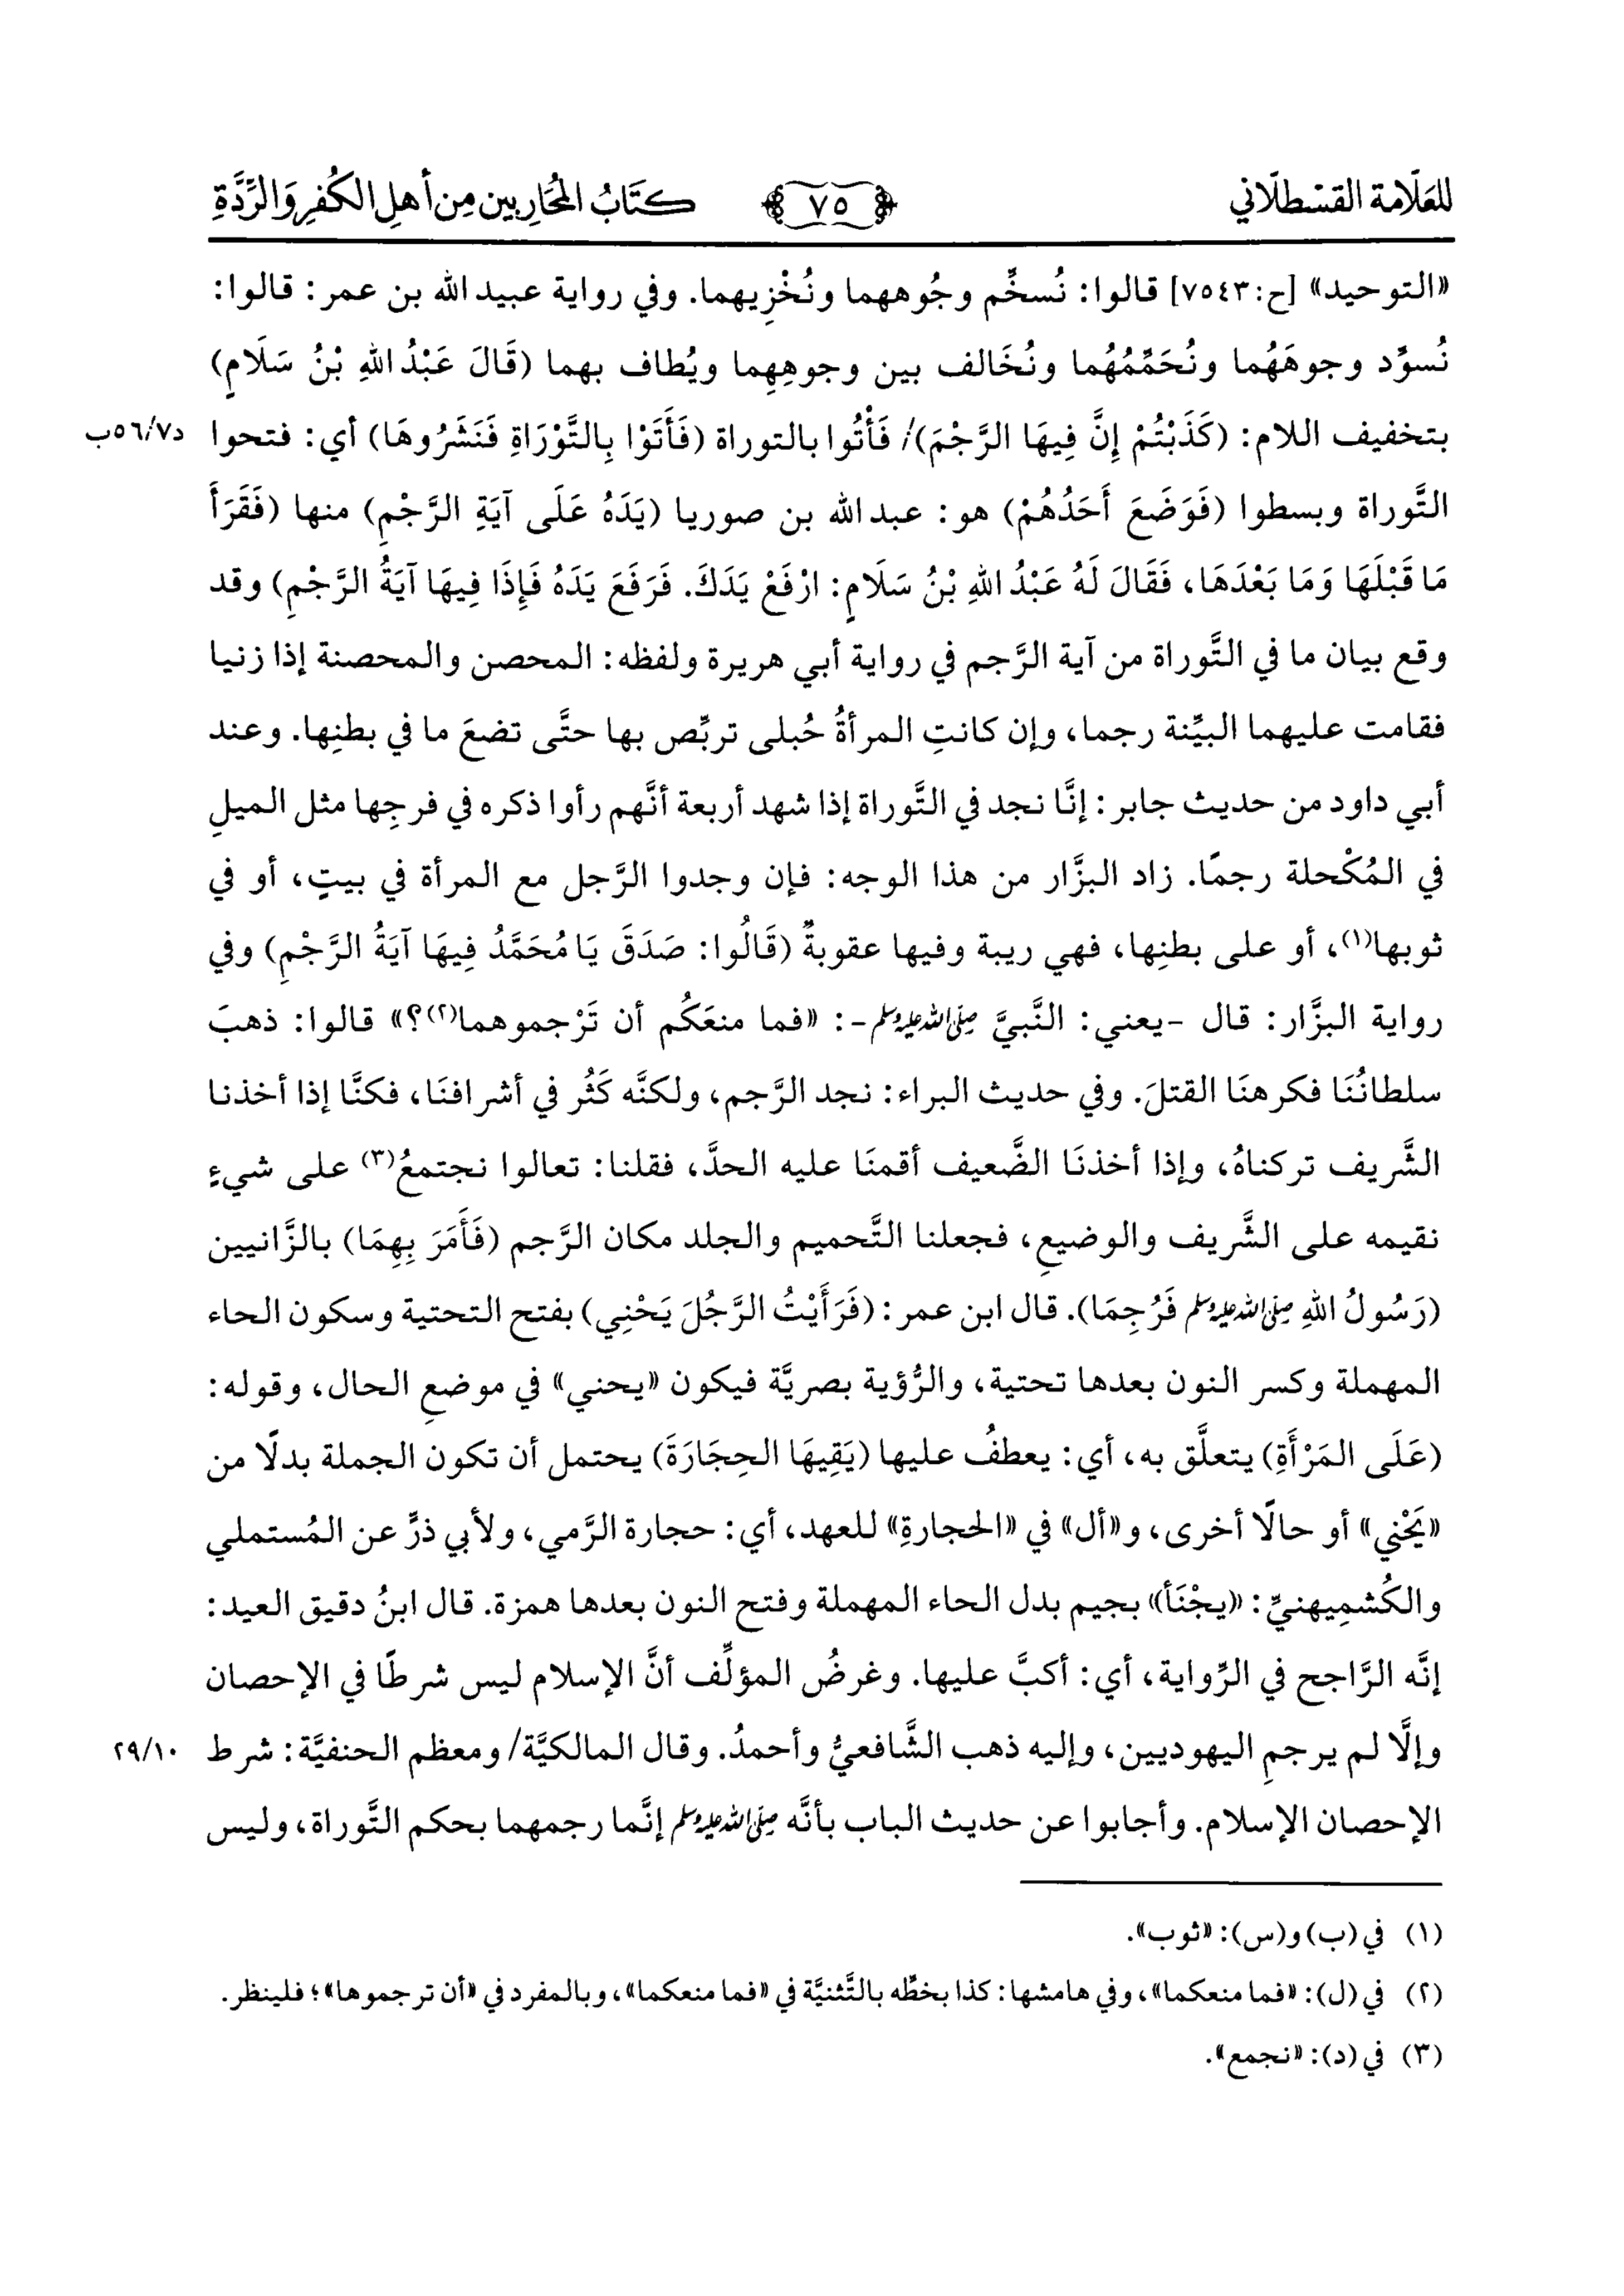 للعَلّامة القسْطلّاني ٧٥ كتَابُ المُحَاربين مِن أهلِ الكُفرِ وَالرِّدَّةِ
«التوحيد» [ح:٧٥٤٣] قالوا: نُسخِّم وجُوههما ونُخْزِيهما. وفي رواية عبيد الله بن عمر: قالوا:
نُسوِّد وجوهَهُما ونُحَمِّمُهُما ونُخَالف بين وجوهِهِما ويُطاف بهما (قَالَ عَبْدُ اللهِ بْنُ سَلَامٍ)
بتخفيف اللام: (كَذَبْتُمْ إِنَّ فِيهَا الرَّجْمَ)/ فَأْتُوا بالتوراة (فَأَتَوْا بِالتَّوْرَاةِ فَنَشَرُوهَا) أي: فتحوا د٧/٥٦ب
التَّوراة وبسطوا (فَوَضَعَ أَحَدُهُمْ) هو: عبد الله بن صوريا (يَدَهُ عَلَى آيَةِ الرَّجْمِ) منها (فَقَرَأَ
مَا قَبْلَهَا وَمَا بَعْدَهَا، فَقَالَ لَهُ عَبْدُ اللهِ بْنُ سَلَامٍ: ارْفَعْ يَدَكَ. فَرَفَعَ يَدَهُ فَإِذَا فِيهَا آيَةُ الرَّجْمِ) وقد
وقع بيان ما في التَّوراة من آية الرَّجم في رواية أبي هريرة ولفظه: المحصن والمحصنة إذا زنيا
فقامت عليهما البيِّنة رجما، وإن كانتِ المرأةُ حُبلى تربِّص بها حتَّى تضعَ ما في بطنِها. وعند
أبي داود من حديث جابر: إنَّا نجد في التَّوراة إذا شهد أربعة أنَّهم رأوا ذكره في فرجِها مثل الميلِ
في المُكْحلة رجمًا. زاد البزَّار من هذا الوجه: فإن وجدوا الرَّجل مع المرأة في بيتٍ، أو في
ثوبها(١)، أو على بطنِها، فهي ريبة وفيها عقوبةٌ (قَالُوا: صَدَقَ يَا مُحَمَّدُ فِيهَا آيَةُ الرَّجْمِ) وفي
رواية البزَّار: قال -يعني: النَّبيَّ ﷺ-: «فما منعَكُم أن تَرْجموهما(٢)؟» قالوا: ذهبَ
سلطانُنَا فكرهنَا القتلَ. وفي حديث البراء: نجد الرَّجم، ولكنَّه كَثُر في أشرافنَا، فكنَّا إذا أخذنا
الشَّريف تركناهُ، وإذا أخذنَا الضَّعيف أقمنَا عليه الحدَّ، فقلنا: تعالوا نجتمعُ(٣) على شيءٍ
نقيمه على الشَّريف والوضيعِ، فجعلنا التَّحميم والجلد مكان الرَّجم (فَأَمَرَ بِهِمَا) بالزَّانيين
(رَسُولُ اللهِ ﷺ فَرُجِمَا). قال ابن عمر: (فَرَأَيْتُ الرَّجُلَ يَحْنِي) بفتح التحتية وسكون الحاء
المهملة وكسر النون بعدها تحتية، والرُّؤية بصريَّة فيكون «يحني» في موضعِ الحال، وقوله:
(عَلَى المَرْأَةِ) يتعلَّق به، أي: يعطفُ عليها (يَقِيهَا الحِجَارَةَ) يحتمل أن تكون الجملة بدلًا من
«يَحْنِي» أو حالًا أخرى، و«أل» في «الحجارةِ» للعهد، أي: حجارة الرَّمي، ولأبي ذرٍّ عن المُستملي
والكُشمِيهنيِّ: «يجْنَأ» بجيم بدل الحاء المهملة وفتح النون بعدها همزة. قال ابنُ دقيق العيد:
إنَّه الرَّاجح في الرِّواية، أي: أكبَّ عليها. وغرضُ المؤلِّف أنَّ الإسلام ليس شرطًا في الإحصان
وإلَّا لم يرجمِ اليهوديين، وإليه ذهب الشَّافعيُّ وأحمدُ. وقال المالكيَّة/ ومعظم الحنفيَّة: شرط ٢٩/١٠
الإحصان الإسلام. وأجابوا عن حديث الباب بأنَّه ﷺ إنَّما رجمهما بحكم التَّوراة، وليس
(١) في (ب) و(س): «ثوب».
(٢) في (ل): «فما منعكما»، وفي هامشها: كذا بخطِّه بالتَّثنيَّة في «فما منعكما»، وبالمفرد في «أن ترجموها»؛ فلينظر.
(٣) في (د): «نجمع».